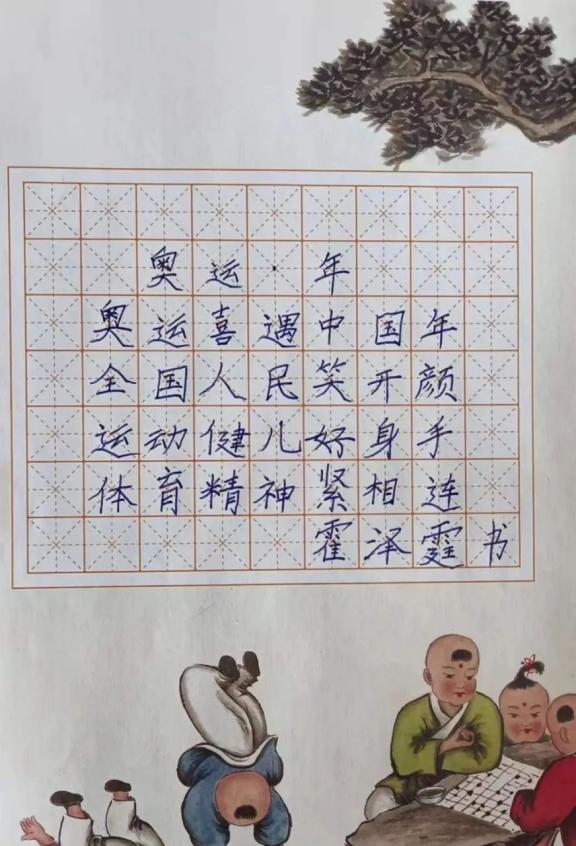 奥运·年
奥运喜遇中国年
全国人民笑开颜
运动健儿好身手
体育精神紧相连
霍泽霆书